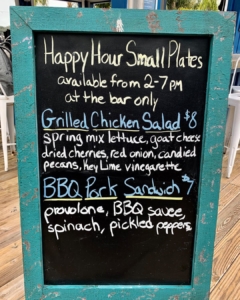 Happy Hour Small Plates
available from 2-7 PM
at the bar only
Grilled Chicken Salad $8
spring mix lettuce, goat cheese
dried cherries, red onion, candied
pecans, Key Lime vinegarette
BBQ Pork Sandwich $7
provolone, BBQ sauce,
spinach, pickled peppers